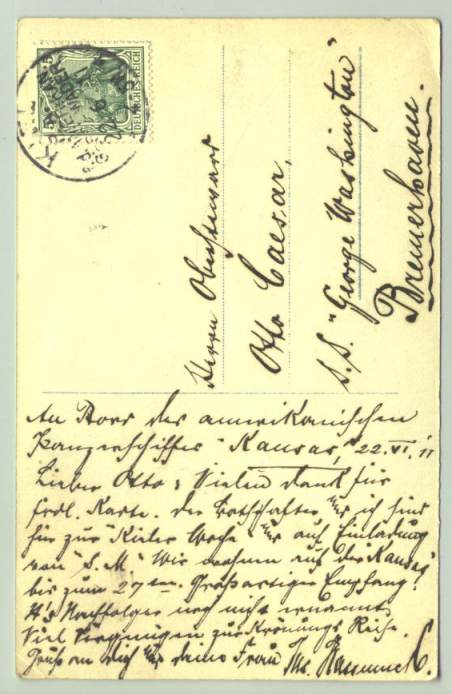 DEUTSCHES REICH
5
KIEL
Herrn Obersteward
Otto Caesar,
S.S. "George Washington"
Bremerhaven.
An Bord des amerikanischen
Panzerschiffes "Kansas," 22.VI.11
Lieber Otto: Vielen Dank für
frdl. Karte. Der Botschafter und ich sind
hier zur "Kieler Woche" auf Einladung
von "S.M." Wir wohnen auf der "Kansas"
bis zum 27ten. Großartiger Empfang!
H's Nachfolger noch nicht ernannt.
Viel Vergnügen zur Krönungs Reise.
Gruß an Dich und Deine Frau